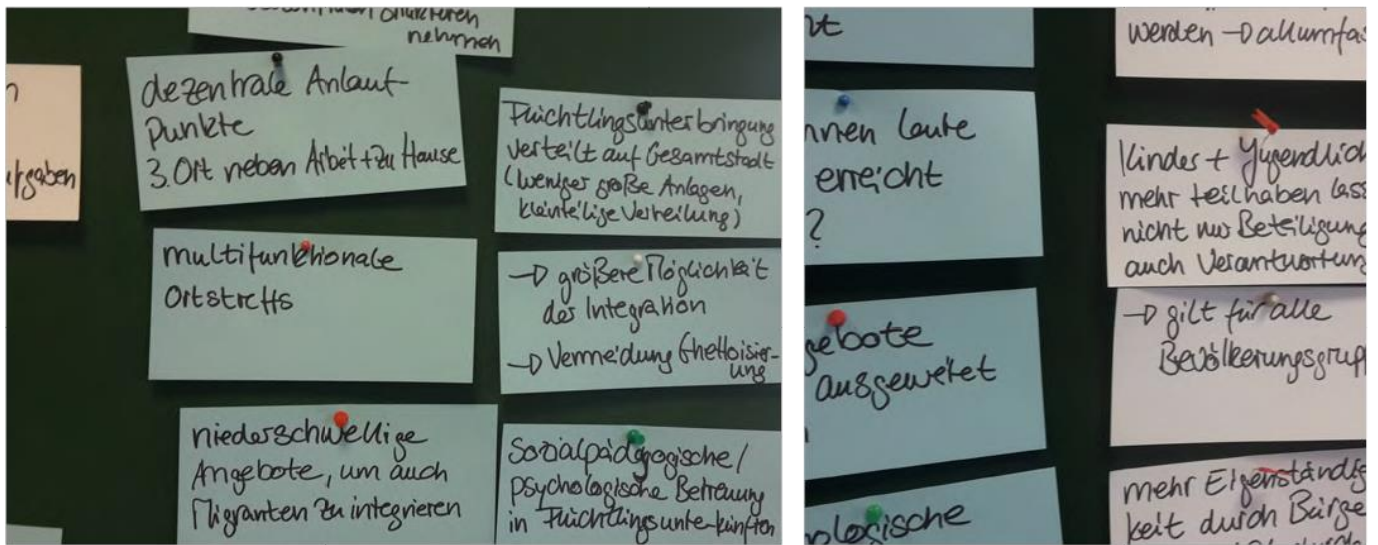 nehmen
dezentrale Anlauf-
Punkte
3. Ort neben Arbeit + zu Hause
multifunktionale
Ortstreffs
niederschwellige
Angebote, um auch
Migranten zu integrieren
Flüchtlingsunterbringung
verteilt auf Gesamtstadt
(weniger große Anlagen,
kleinteilige Verteilung)
→ größere Möglichkeit
der Integration
→ Vermeidung Ghettoisier-
ung
Sozialpädagogische /
psychologische Betreuung
in Flüchtlingsunterkünften
Leute
erreicht
?
ausgeweitet
werden →
Kinder + Jugendlich
mehr teilhaben lass
nicht nur Beteiligung
auch Verantwortun
→ gilt für alle
Bevölkerungsgrup
mehr Eigenständig
keit durch Bürge